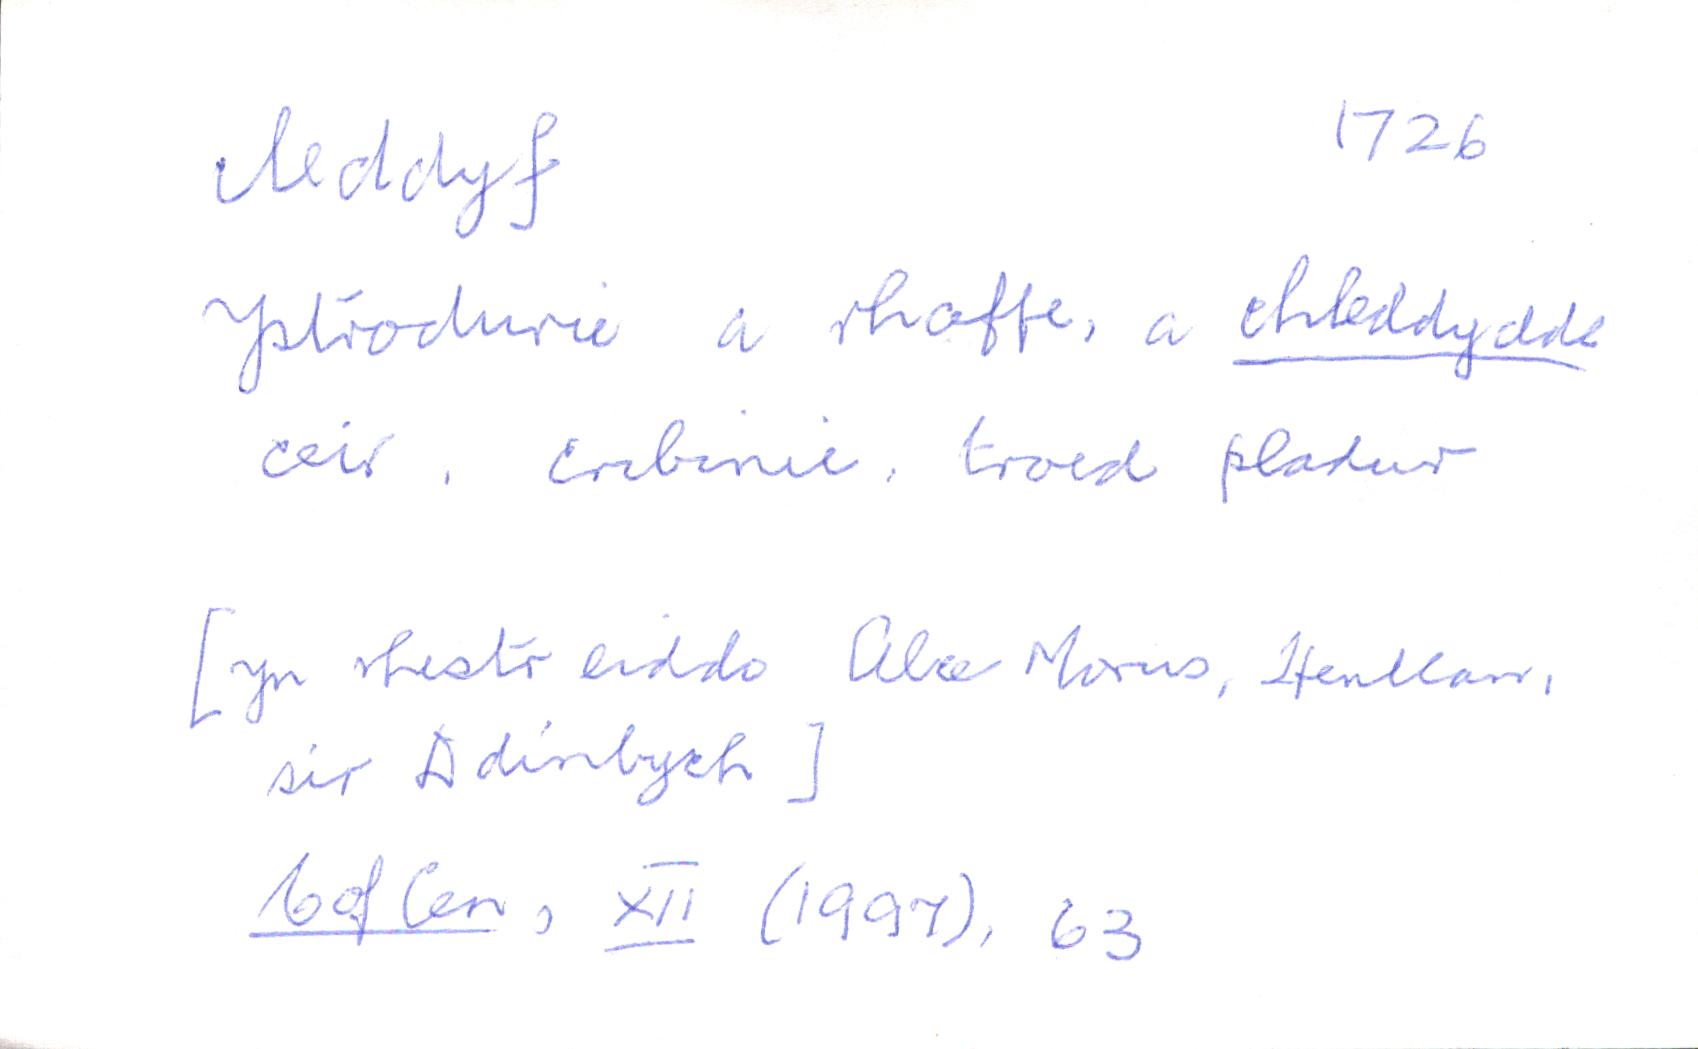 cleddyf 1726
ystrodurie a rhaffe, a chleddydde
ceir, cribinie, troed pladur
[yn rhestr eiddo Alce Morus, Henllan,
sir Ddinbych]
Cof Cen, XII (1997), 63